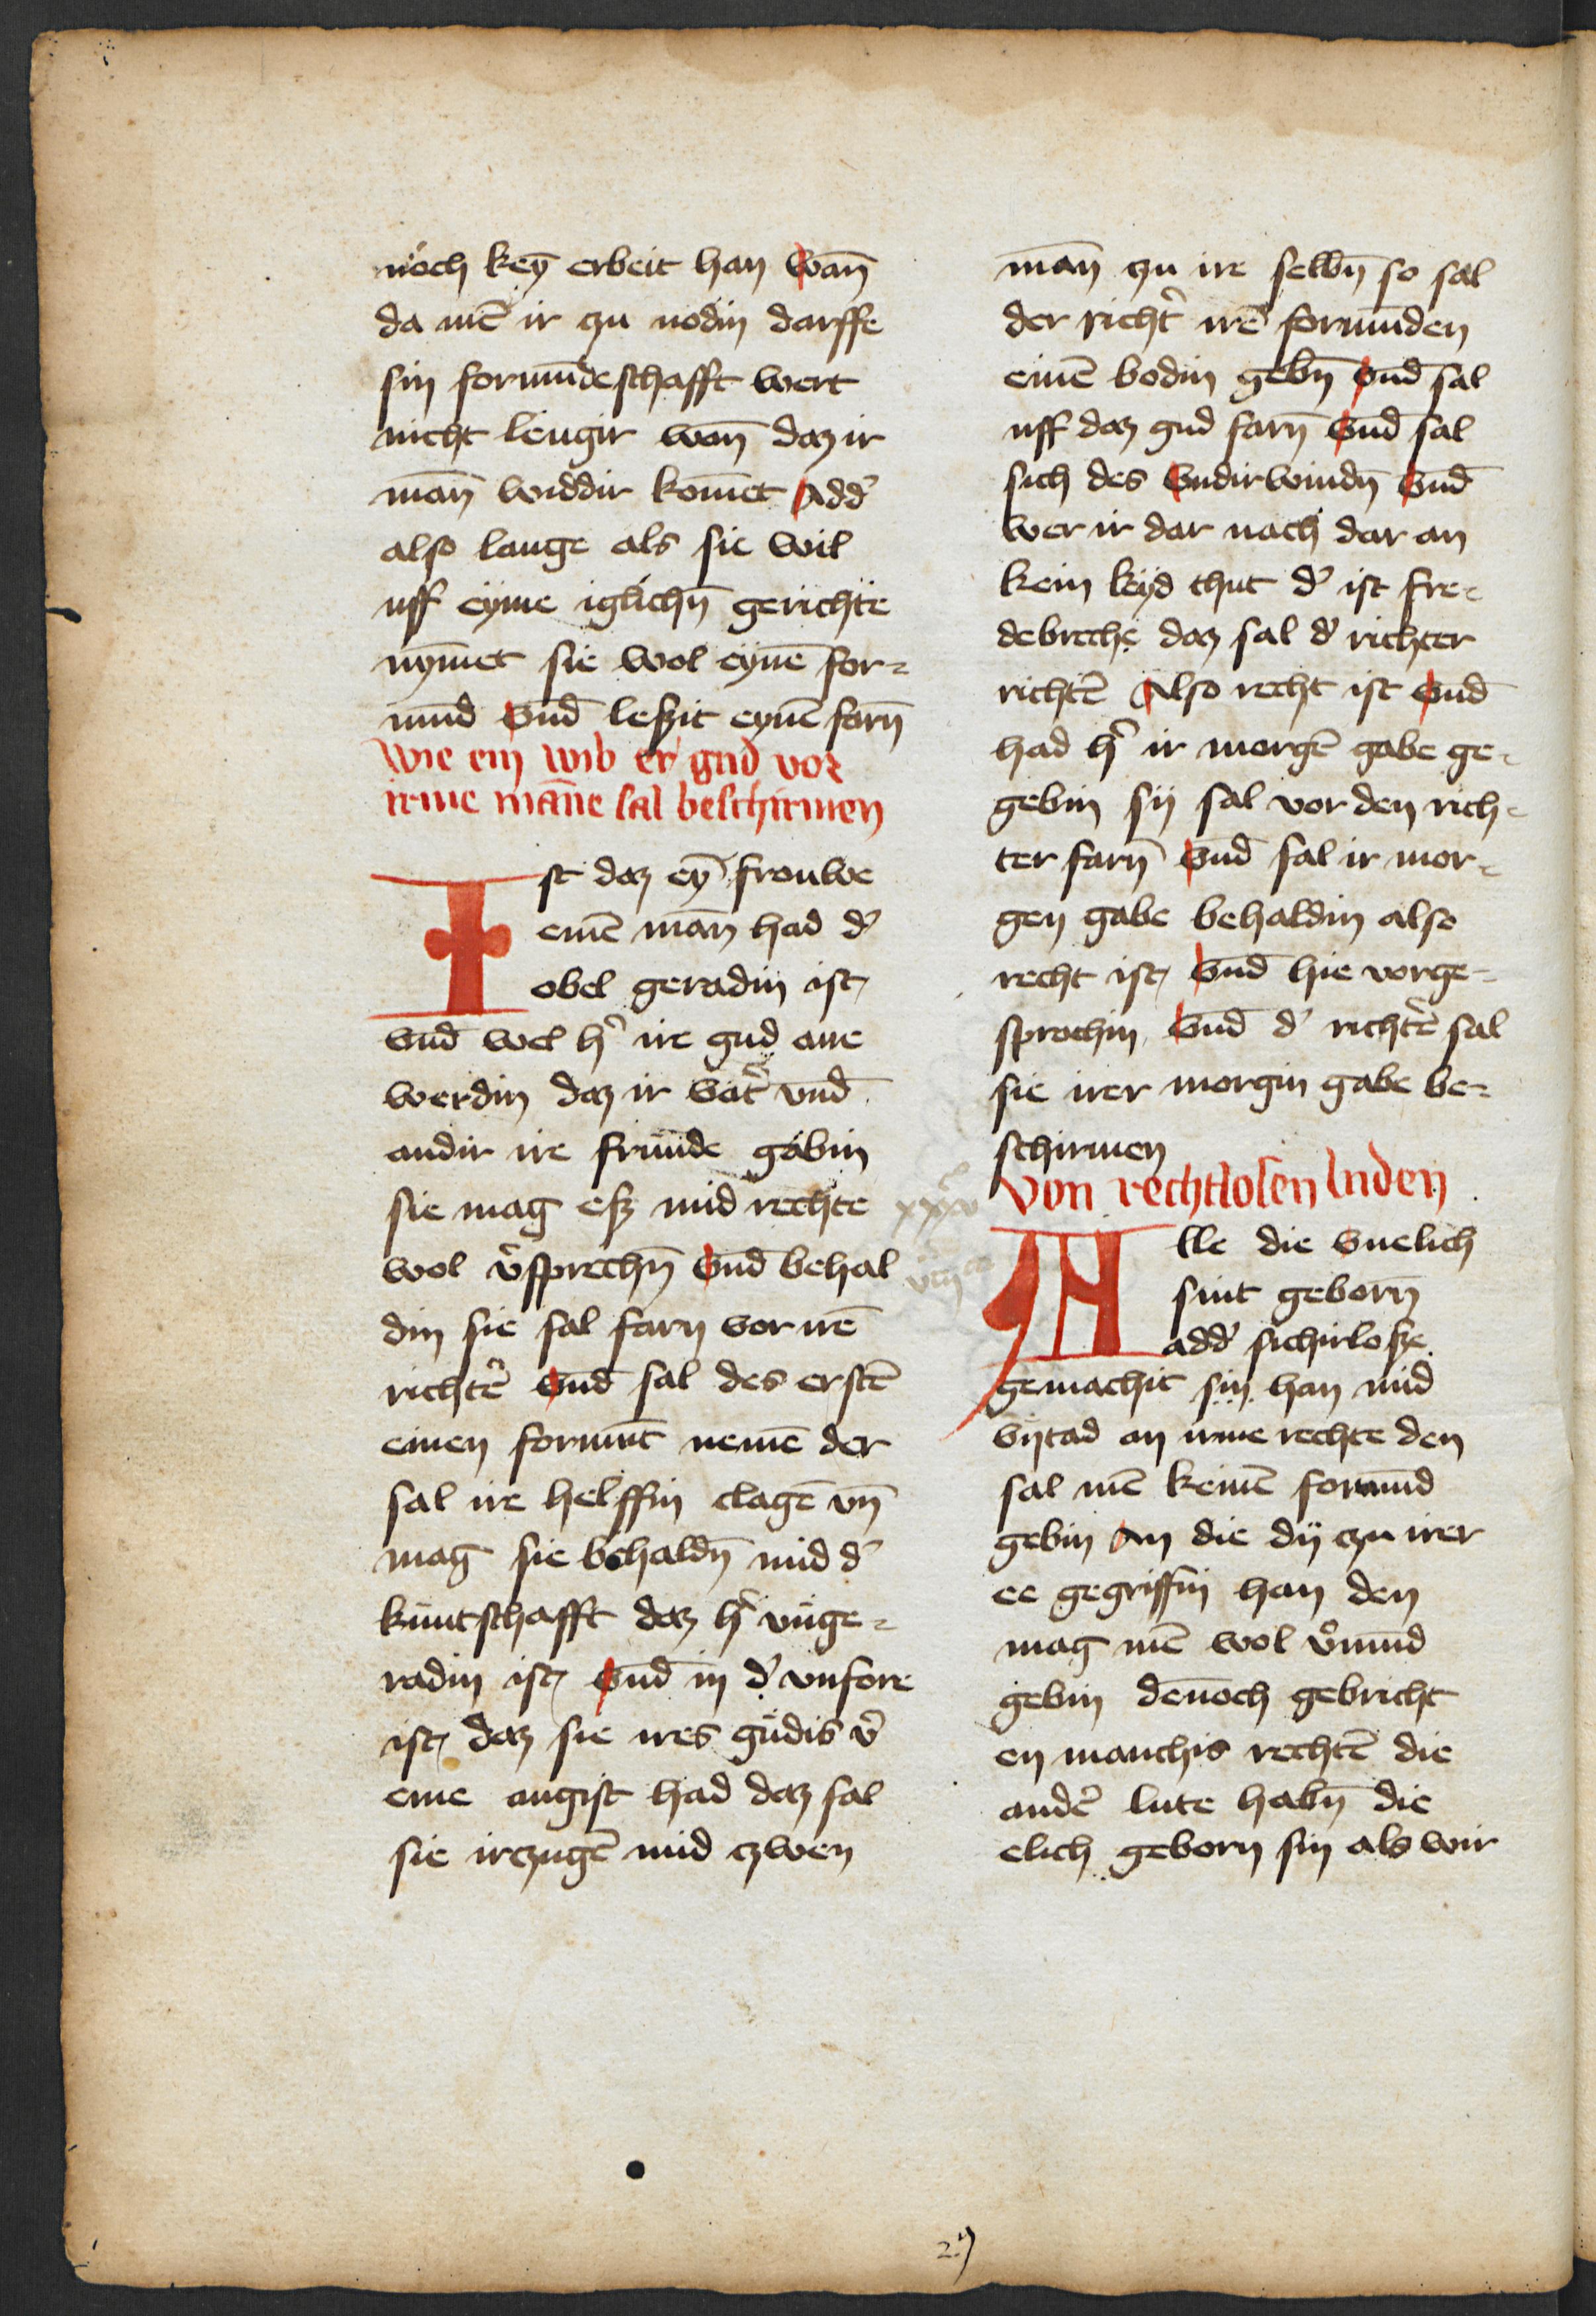 noch keȳ erbeit han wan̄
da mē ir zu nodin darffe
sin formūdeschafft wert
nicht lengir won̄ daz ir
man̄ widdir kom̄et Add᾽
also lange als sie wil
uff eyme iglichn̄ gerichte
nym̄et sie wol eynē for=
mūd vnd̄ leszit eynē farn̄
Wie ein wib er gud vor
irme man̄e sal beschirmen
Ist daz eȳ frouwe
einē man̄ had d᾽
obel geradin ist
vnd̄ wel h᾽ ire gud ane
werdin daz ir vat᾽ vnd̄
andir ire frūnde gabin
sie mag esz mid rechte
wol v᾽sprechn̄ vnd̄ behal
din sie sal farn vor irē
richt᾽e vnd̄ sal des erstē
einen formūt nemē der
sal ire helffin clagē vn̄
mag sie behaldn̄ mid d᾽
kuntschafft daz h᾽ unge=
radin ist vnd̄ in d᾽ vnfore
ist daz sie ires gudis v᾽
eine angist had daz sal
sie irzugē mid zwen
man̄ zu ire selbn̄ so sal
der richt᾽ irē formūnden
einē bodin gebn̄ vnd̄ sal
uff daz gud farn̄ vnd̄ sal
sich des vndirwindn̄ vnd̄
wer ir dar nach dar an
kein leyd thut d᾽ ist fre=
debreche daz sal d᾽ richter
richtē Also recht ist vnd̄
had h᾽ ir morgē gabe ge=
gebin sij sal vor den rich=
ter farn̄ vnd̄ sal ir mor=
gen gabe behaldin also
recht ist vnd̄ hie vorge=
sprochin vnd̄ d᾽ richt᾽e sal
sie irer morgin gabe be=
schirmen
Von rechtlosen luden
Alle die vnelich
sint geborn̄
add᾽ sichirlosze
gemachit sin han mid
vijtad an irme rechte den
sal mē keinē formūd
gebin An die dij zu irer
ee gegriffin han den
mag mē wol v᾽mūnd
gebin den̄och gebricht
en manchis rechtē die
and᾽e lute habn̄ die
elich geborn sin als wir